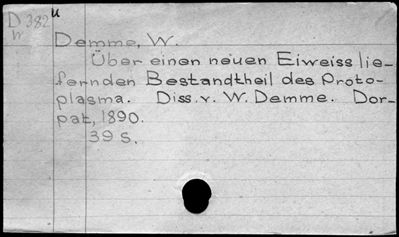 D 382 u
n
Demme, W.
Über einen neuen Eiweiss lie-
fernden Bestandtheil des Proto-
plasma. Diss. v. W. Demme. Dor-
pat, 1890.
39 S.